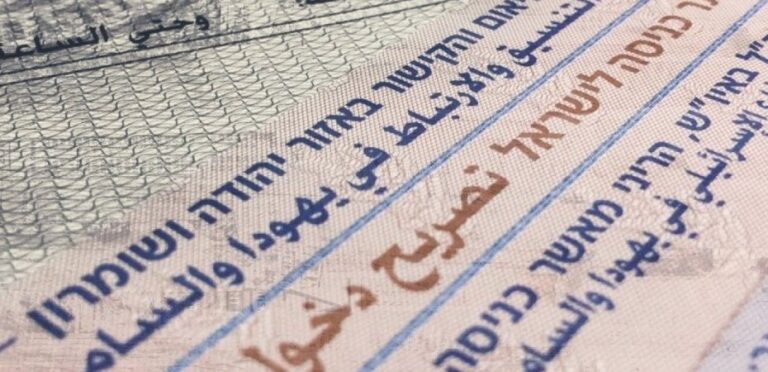 وحتي الساعة
והקישור באזור יהודה ושומרון -
التنسيق والارتباط في يهودا والسام
כניסה לישראל تصريح دخول
באיו"ש, הריני מאשר כניסה
الإسرائيلي في يهودا والسام